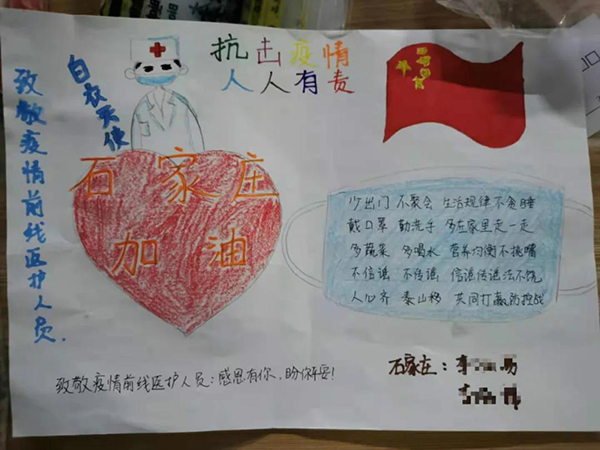 致敬疫情前线医护人员.
白衣天使
抗击疫情
人人有责
石家庄
加油
少出门 不聚会 生活规律不贪睡
戴口罩 勤洗手 多在家里走一走
多蔬菜 多喝水 营养均衡不挑嘴
不信谣 不传谣 信谣传谣法不饶
人心齐 泰山移 共同打赢防控战
致敬疫情前线医护人员:感恩有你,盼你平安!
石家庄:李